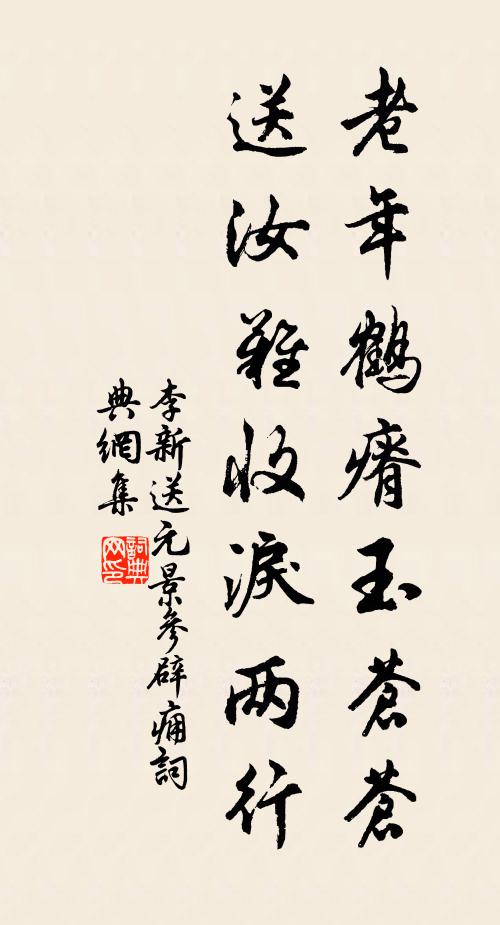 老年鶴瘠玉蒼蒼
送汝難收淚兩行
李新送元景參辟痈詞
典網集
詞典網印